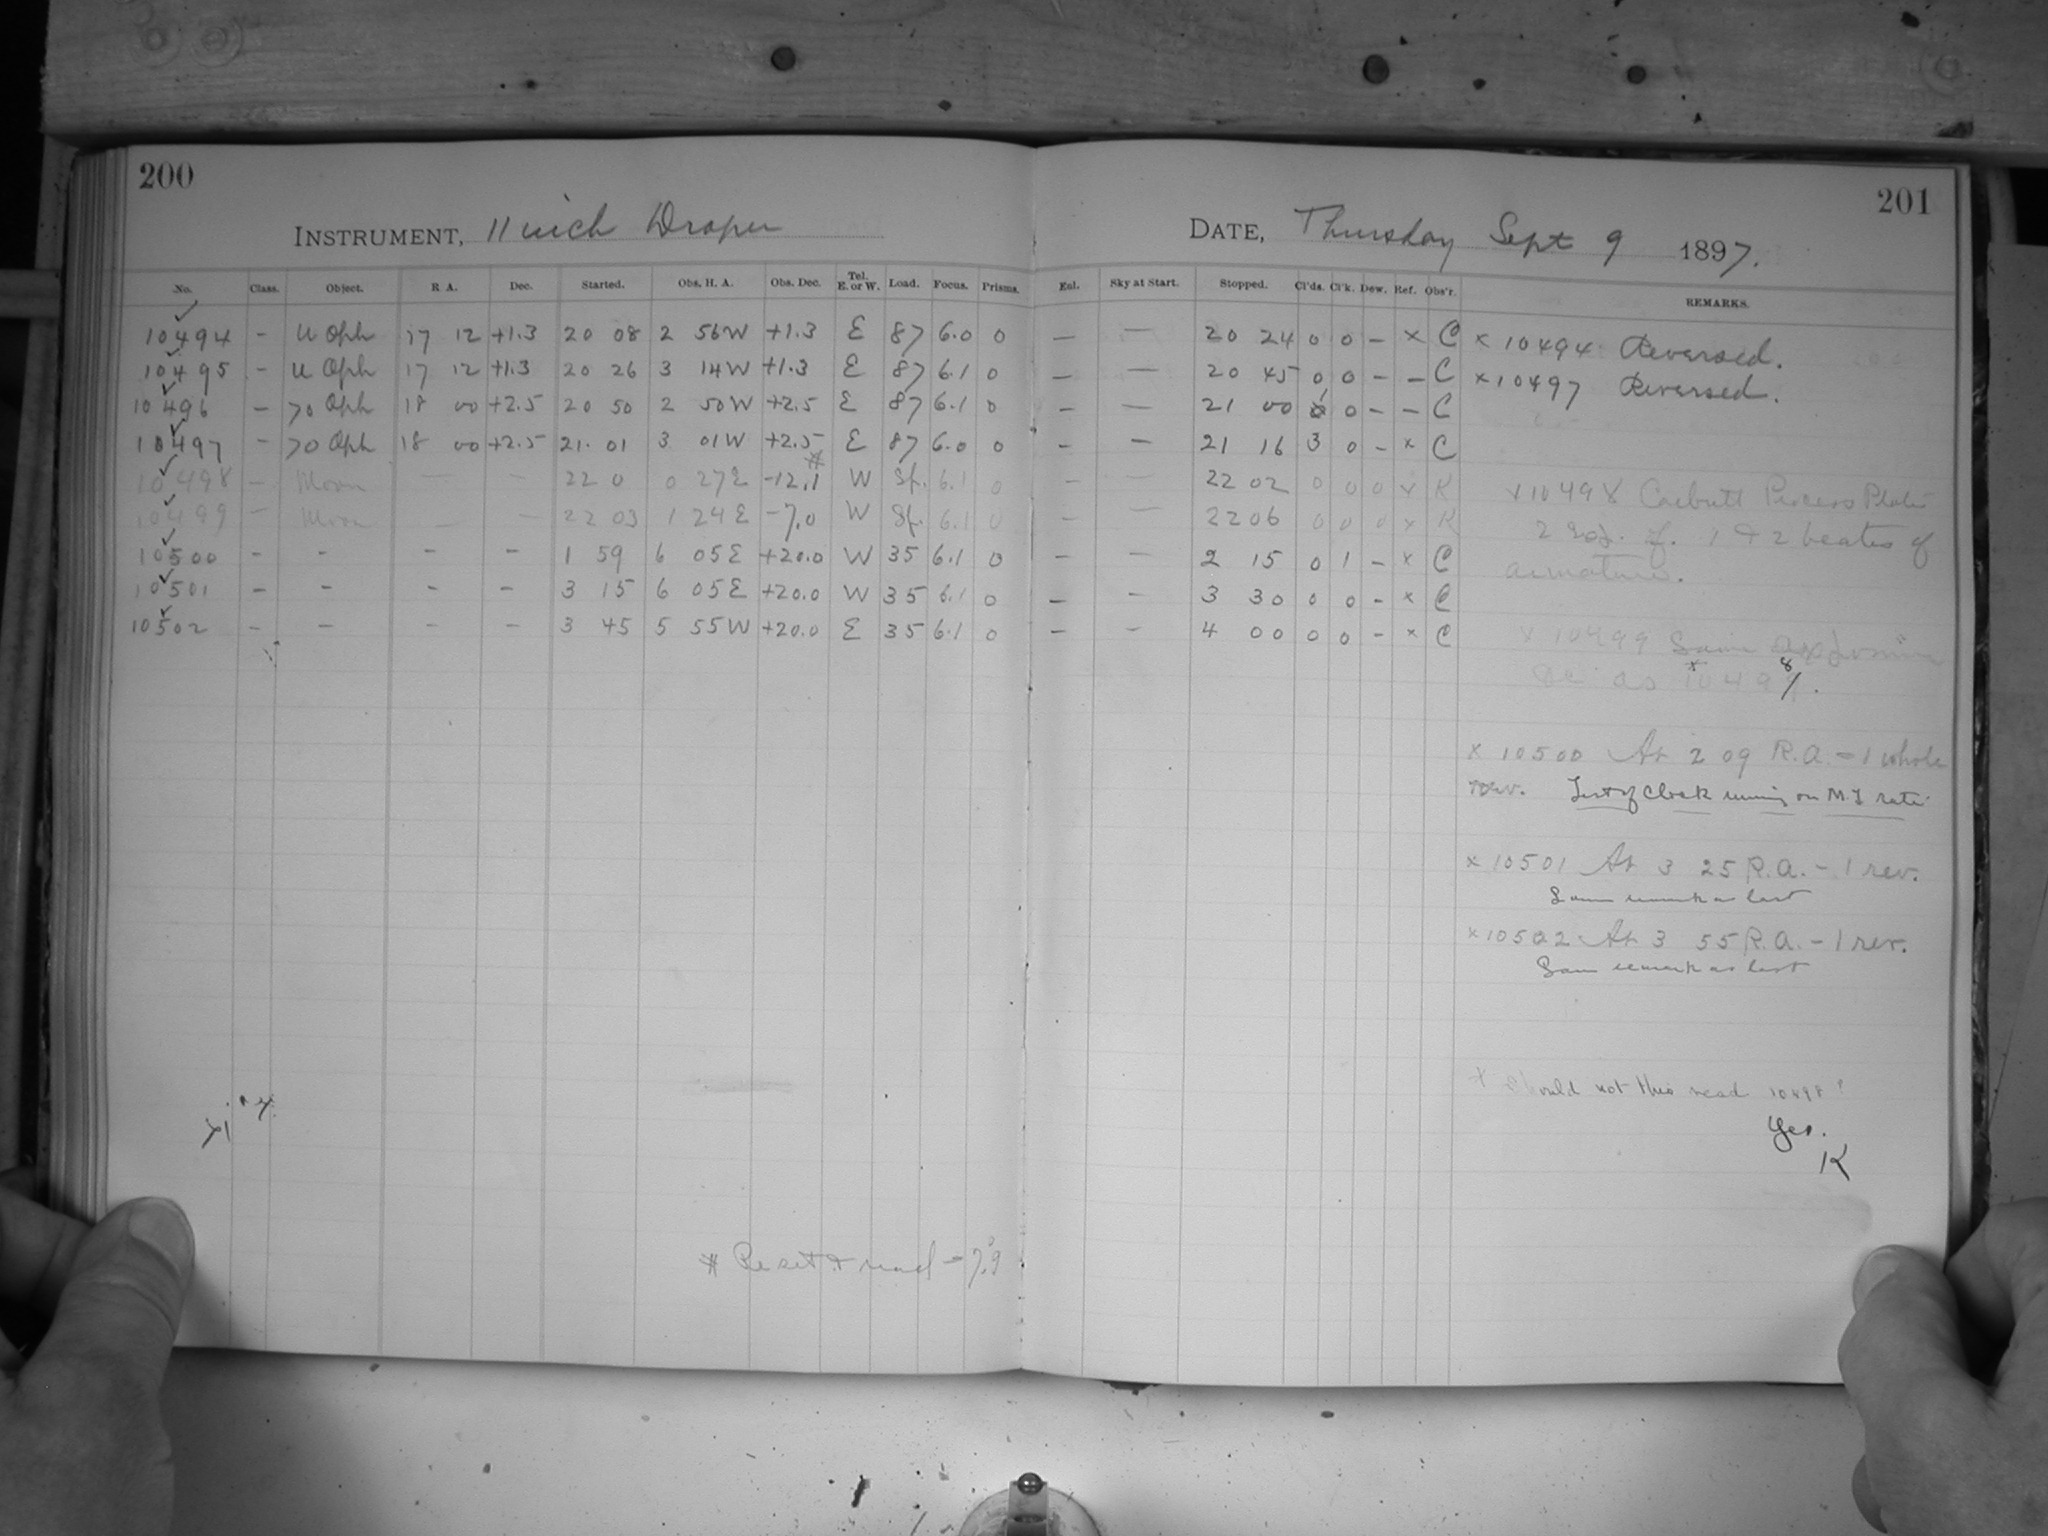 200
201
INSTRUMENT, 11 inch Draper
DATE, Thursday Sept 9 1897.
No. Class. Object. R A. Dec. Started. Obs. H. A. Obs. Dec. Tel. E. or W. Load. Focus. Prisms. Eul. Sky at Start. Stopped. Cl'ds. Cl'k. Dew. Ref. Obs'r. REMARKS.
10494 – U Oph 17 12 +1.3 20 08 2 56W +1.3 E 87 6.0 0 — — 20 24 0 0 – × C × 10494 Reversed.
10495 – U Oph 17 12 +1.3 20 26 3 14W +1.3 E 87 6.1 0 — — 20 45 0 0 – – C ×10497 Reversed.
10496 – 70 Oph 18 00 +2.5 20 50 2 50W +2.5 E 87 6.1 0 — — 21 00 0 – – C
10497 – 70 Oph 18 00 +2.5 21. 01 3 01W +2.5 E 87 6.0 0 – — 21 16 3 0 – × C
10498 – Moon — – 22 0 0 27E -12.1 W Sp. 6.1 0 – — 22 02 0 0 0 × K
10499 – Moon — – 22 03 1 24E -7.0 W Sp. 6.1 0 – — 22 06 0 0 0 × K
10500 – – – – 1 59 6 05E +20.0 W 35 6.1 0 – – 2 15 0 1 – × C
10501 – – – – 3 15 6 05E +20.0 W 35 6.1 0 — – 3 30 0 0 – × C
10502 – – – – 3 45 5 55W +20.0 E 35 6.1 0 – – 4 00 0 0 – × C
×10498 Carbutt Process Plate
2 Exp. of. 1 & 2 beates of
armature.
× 10499 Same
&c as 10498.
× 10500 At 2 09 R.A. – 1 whole
rev. Test of Clock running on M.T. rate
× 10501 At 3 25 R.A. – 1 rev.
Same remark as last
×10502 At 3 55 R.A. – 1 rev.
Same remark as last
× Should not this read 10498?
Yes.
K
# Reset & read –7.9